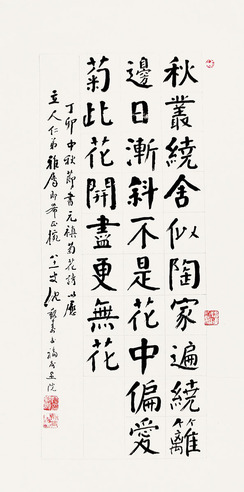 秋叢繞舍似陶家遍繞籬
邊日漸斜不是花中偏愛
菊此花開盡更無花
丁卯中秋節書元稹菊花詩以應
立人仁弟雅屬即希正腕